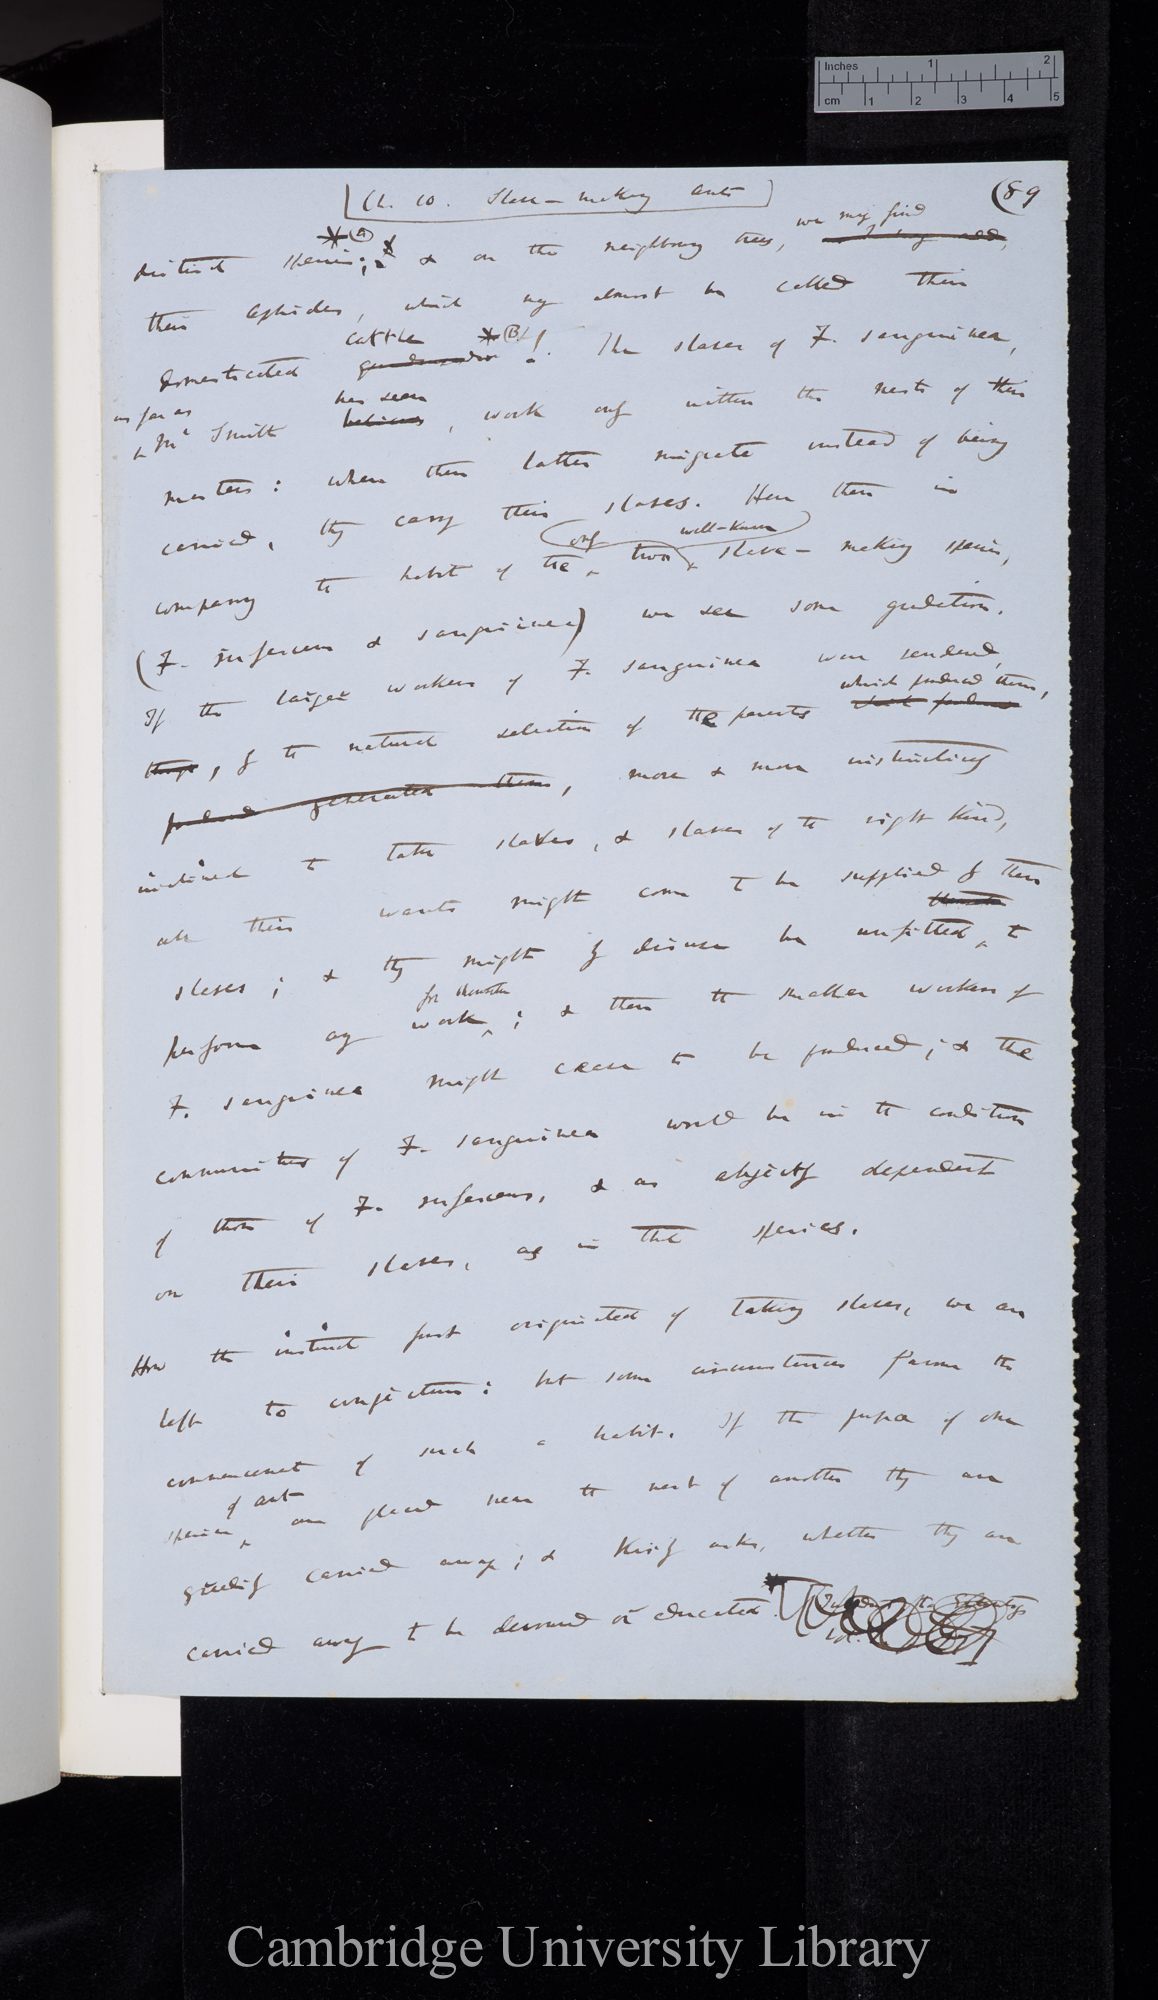 Inches 1 2
cm 1 2 3 4 5
Ch. 10. Slave-making ants (89
we may find
distinct species; & on the neighbouring trees,
their Aphides, which may almost be called their
cattle
domesticated ! The slaves of F. sanguinea,
as far as has seen
Mr Smith believes, work only within the nests of their
masters: when these latter migrate instead of being
carried, they carry their slaves. Here then in
only well-known
comparing the habits of the two slave-making species,
(F. rufescens & sanguinea) we see some gradation.
If the larger workers of F. sanguinea were rendered,
which produced them,
by the natural selection of the parents
produced generated them, more & more instinctively
inclined to take slaves, & slaves of the right kind,
all their wants might come to be supplied by their
slaves; & they might by disuse be unfitted to
for themselves
perform any work; & then the smaller workers of
F. sanguinea might cease to be produced; & the
communities of F. sanguinea would be in the condition
of those of F. rufescens, & as abjectly dependent
on their slaves, as in that species.
How the instinct first originated of taking slaves, we are
left to conjecture: but some circumstances favour the
commencement of such a habit. If the pupæ of one
of ant
species are placed near the nest of another they are
greedily carried away; & Kirby asks, whether they are
carried away to be devoured or educated.
Cambridge University Library